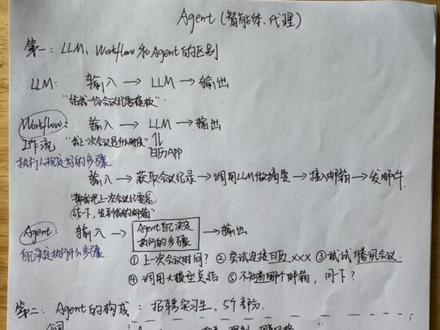 Agent (智能体、代理)
第一：LLM、Workflow 和 Agent 的区别
LLM: 输入 → LLM → 输出
"给我一份会议纪要模板"
Workflow: 输入 → LLM → 输出
工作流 "我上一次会议是什么时候" ⇅ 日历APP
执行人规定好的步骤
输入 → 获取会议纪录 → 调用LLM做摘要 → 接入邮箱 → 发邮件.
"帮我把上一次会议纪要
Agent: 输入 → Agent自己决定执行的步骤 → 输出
自己决定执行什么步骤
① 上一次会议时间? ② 尝试连接日历, xxx ③ 试试腾讯会议.
④ 调用大模型总结 ⑤ 不知道哪个邮箱, 问一下?
第二：Agent 的构成：招聘实习生, 5个部分.